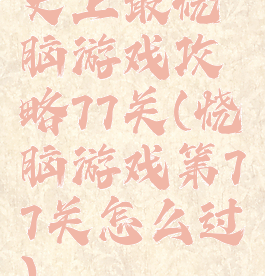 史上最烧
脑游戏攻
略77关(烧
脑游戏第7
7关怎么过
)